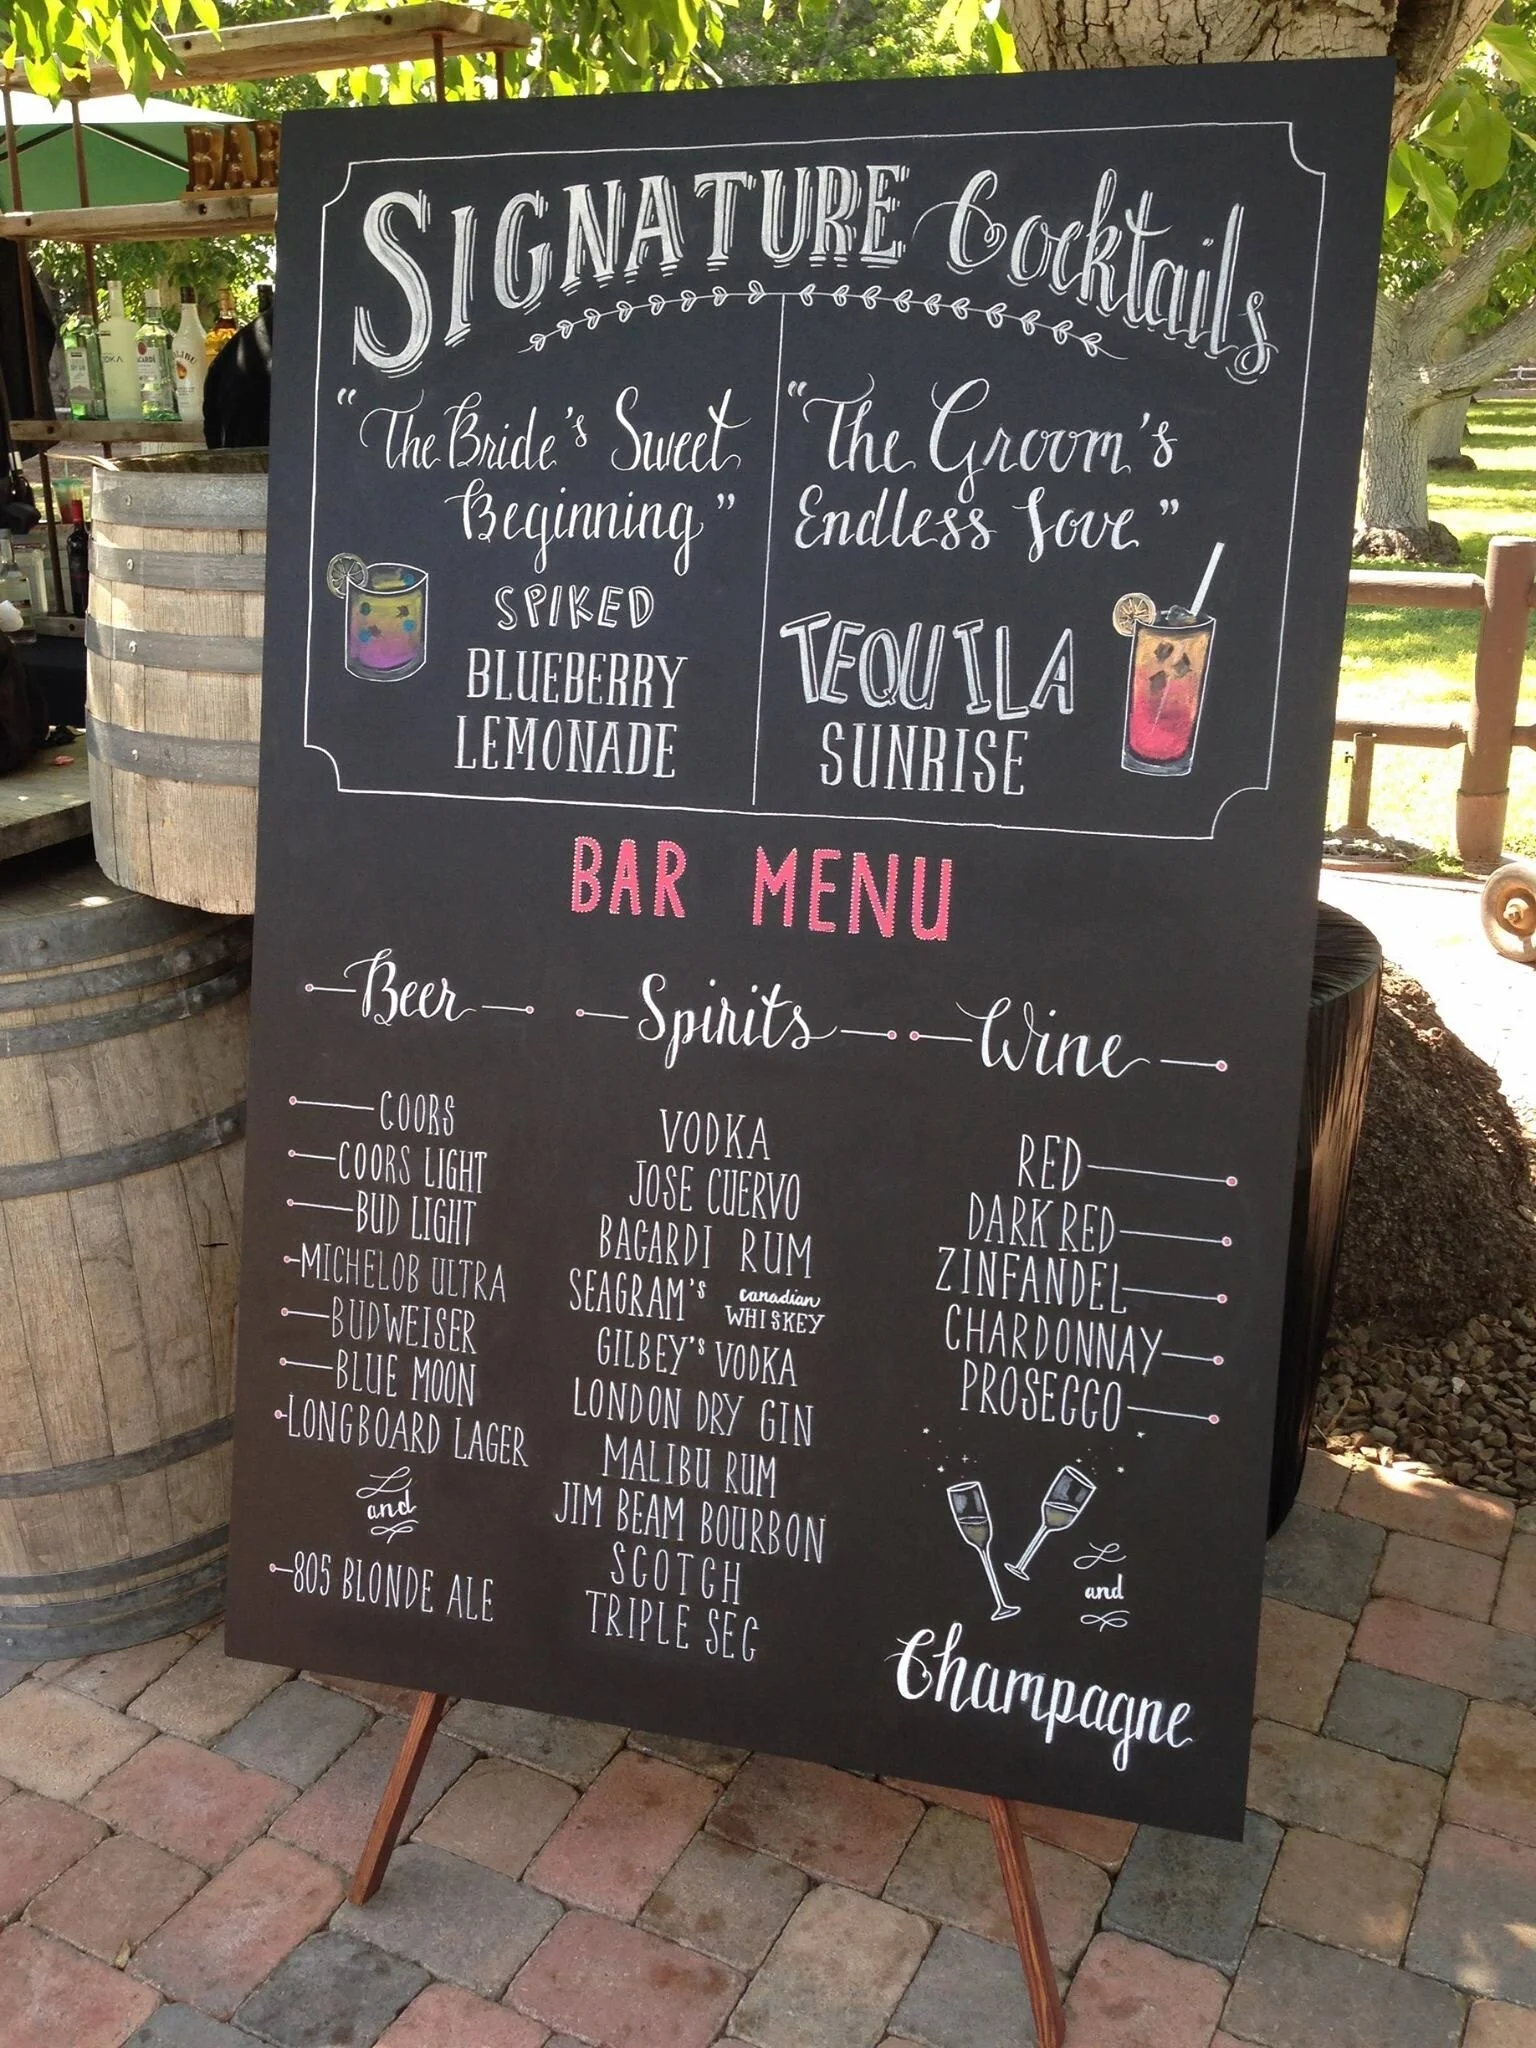 SIGNATURE Cocktails
"The Bride's Sweet
Beginning"
SPIKED
BLUEBERRY
LEMONADE
"The Groom's
Endless Love"
TEQUILA
SUNRISE
BAR MENU
Beer
COORS
COORS LIGHT
BUD LIGHT
MICHELOB ULTRA
BUDWEISER
BLUE MOON
LONGBOARD LAGER
and
805 BLONDE ALE
Spirits
VODKA
JOSE CUERVO
BACARDI RUM
SEAGRAM'S canadian WHISKEY
GILBEY'S VODKA
LONDON DRY GIN
MALIBU RUM
JIM BEAM BOURBON
SCOTCH
TRIPLE SEC
Wine
RED
DARK RED
ZINFANDEL
CHARDONNAY
PROSECCO
and
Champagne